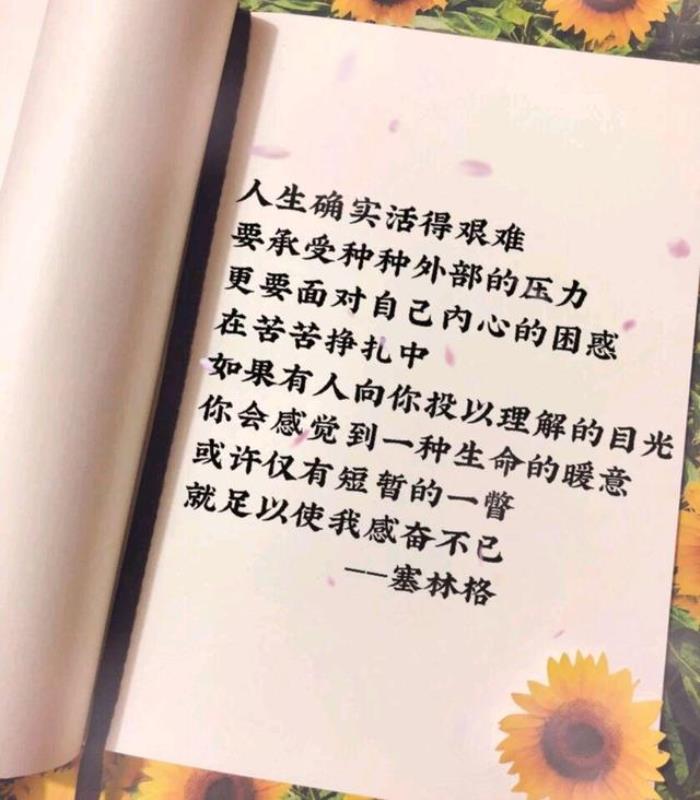 人生确实活得艰难
要承受种种外部的压力
更要面对自己内心的困惑
在苦苦挣扎中
如果有人向你投以理解的目光
你会感觉到一种生命的暖意
或许仅有短暂的一瞥
就足以使我感奋不已
——塞林格